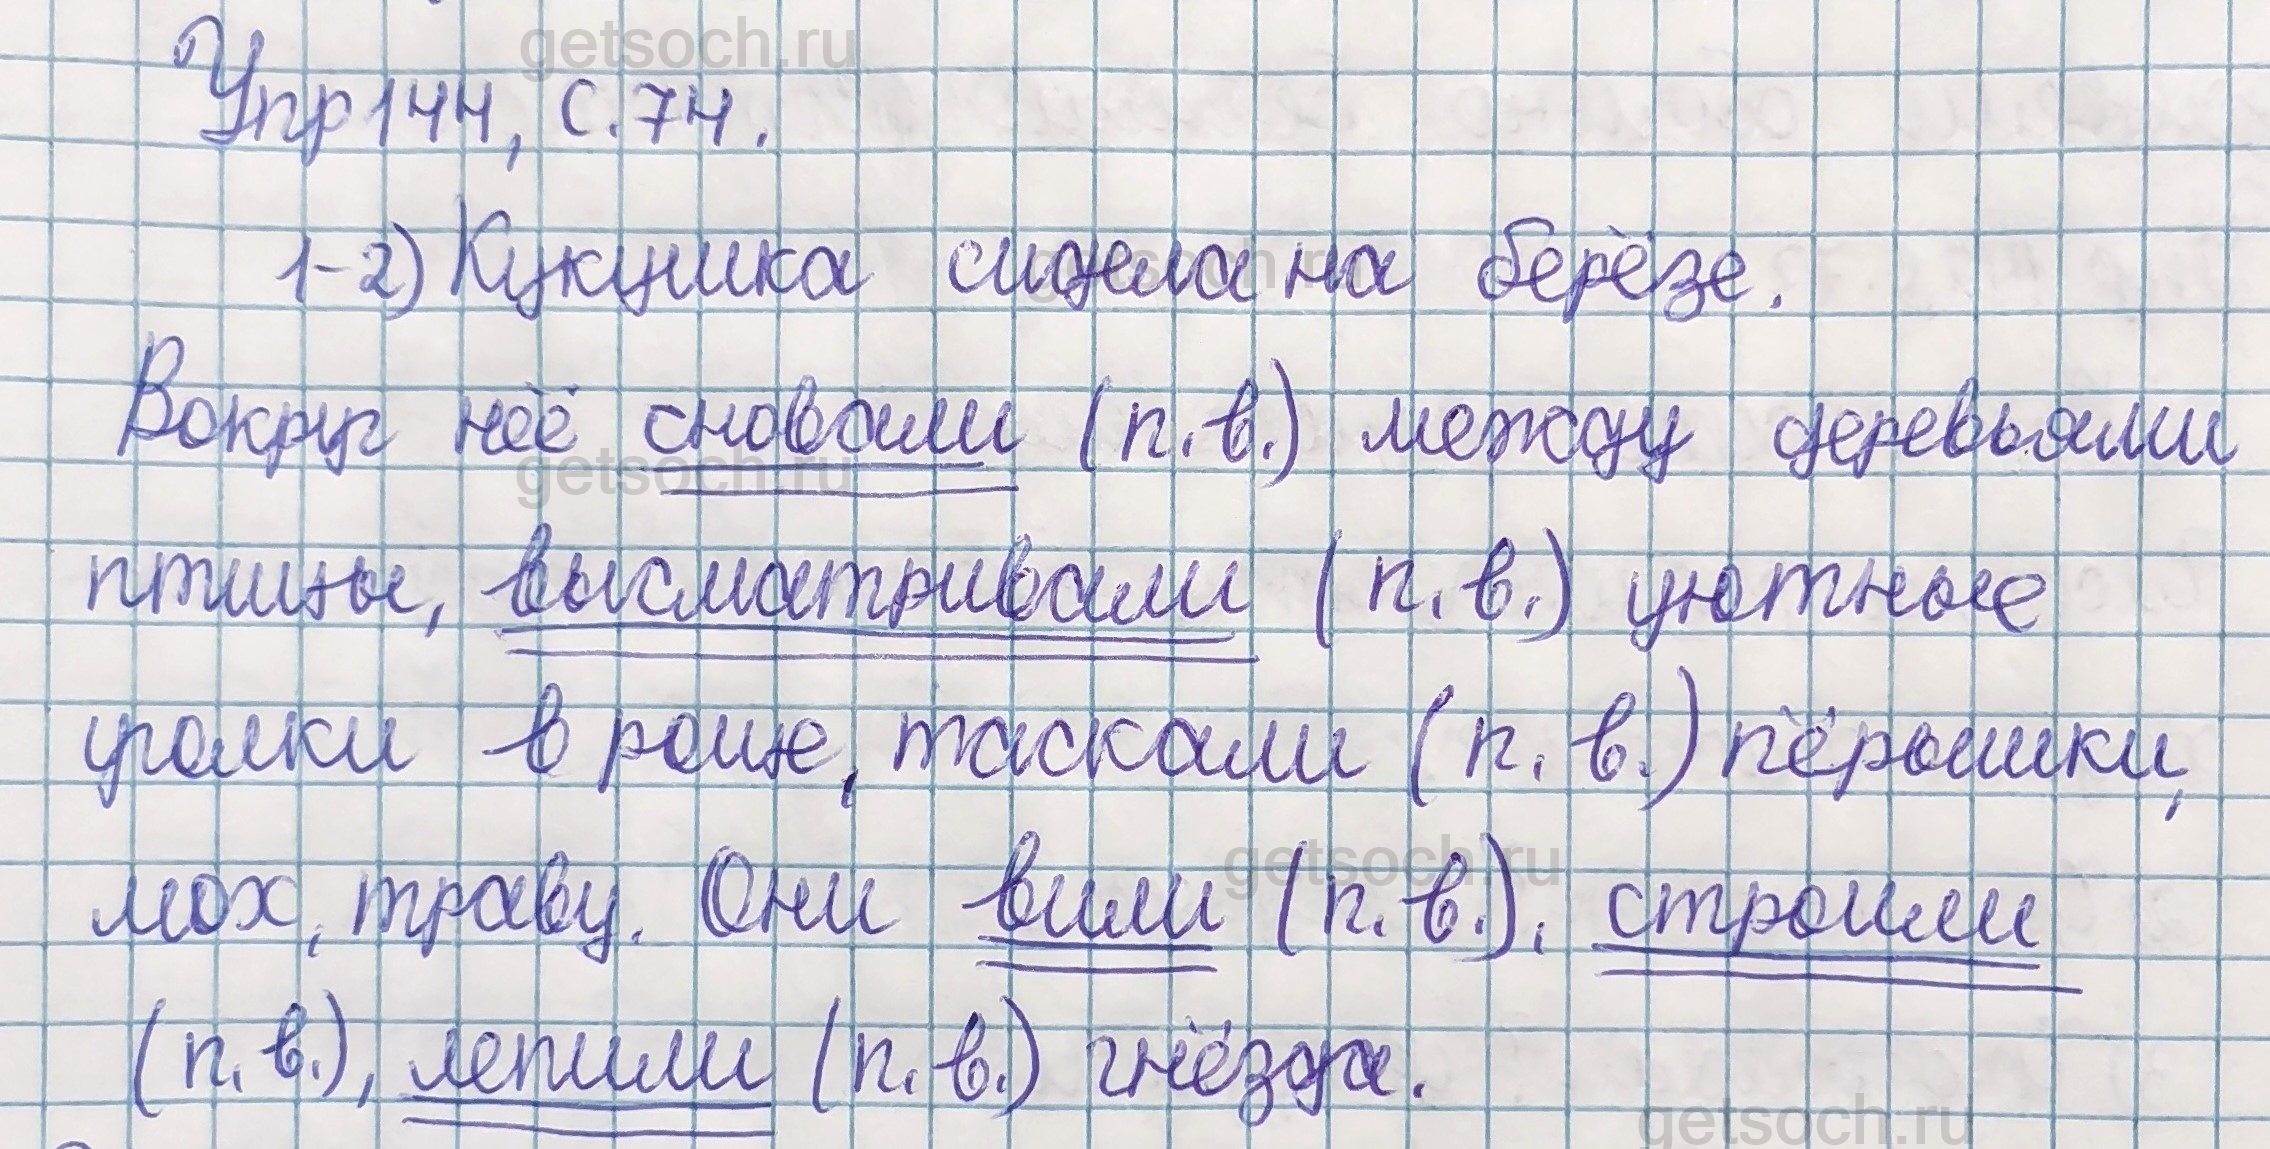 getsoch.ru
Упр 144, с. 74.
1-2) Кукушка сидела на берёзе.
getsoch.ru
Вокруг неё сновали (п. в.) между деревьями
getsoch.ru
птицы, высматривали (п. в.) уютные
уголки в роще, таскали (п. в.) пёрышки,
мох, траву. Они вили (п. в.), строили
getsoch.ru
(п. в.), лепили (п. в.) гнёзда.
getsoch.ru